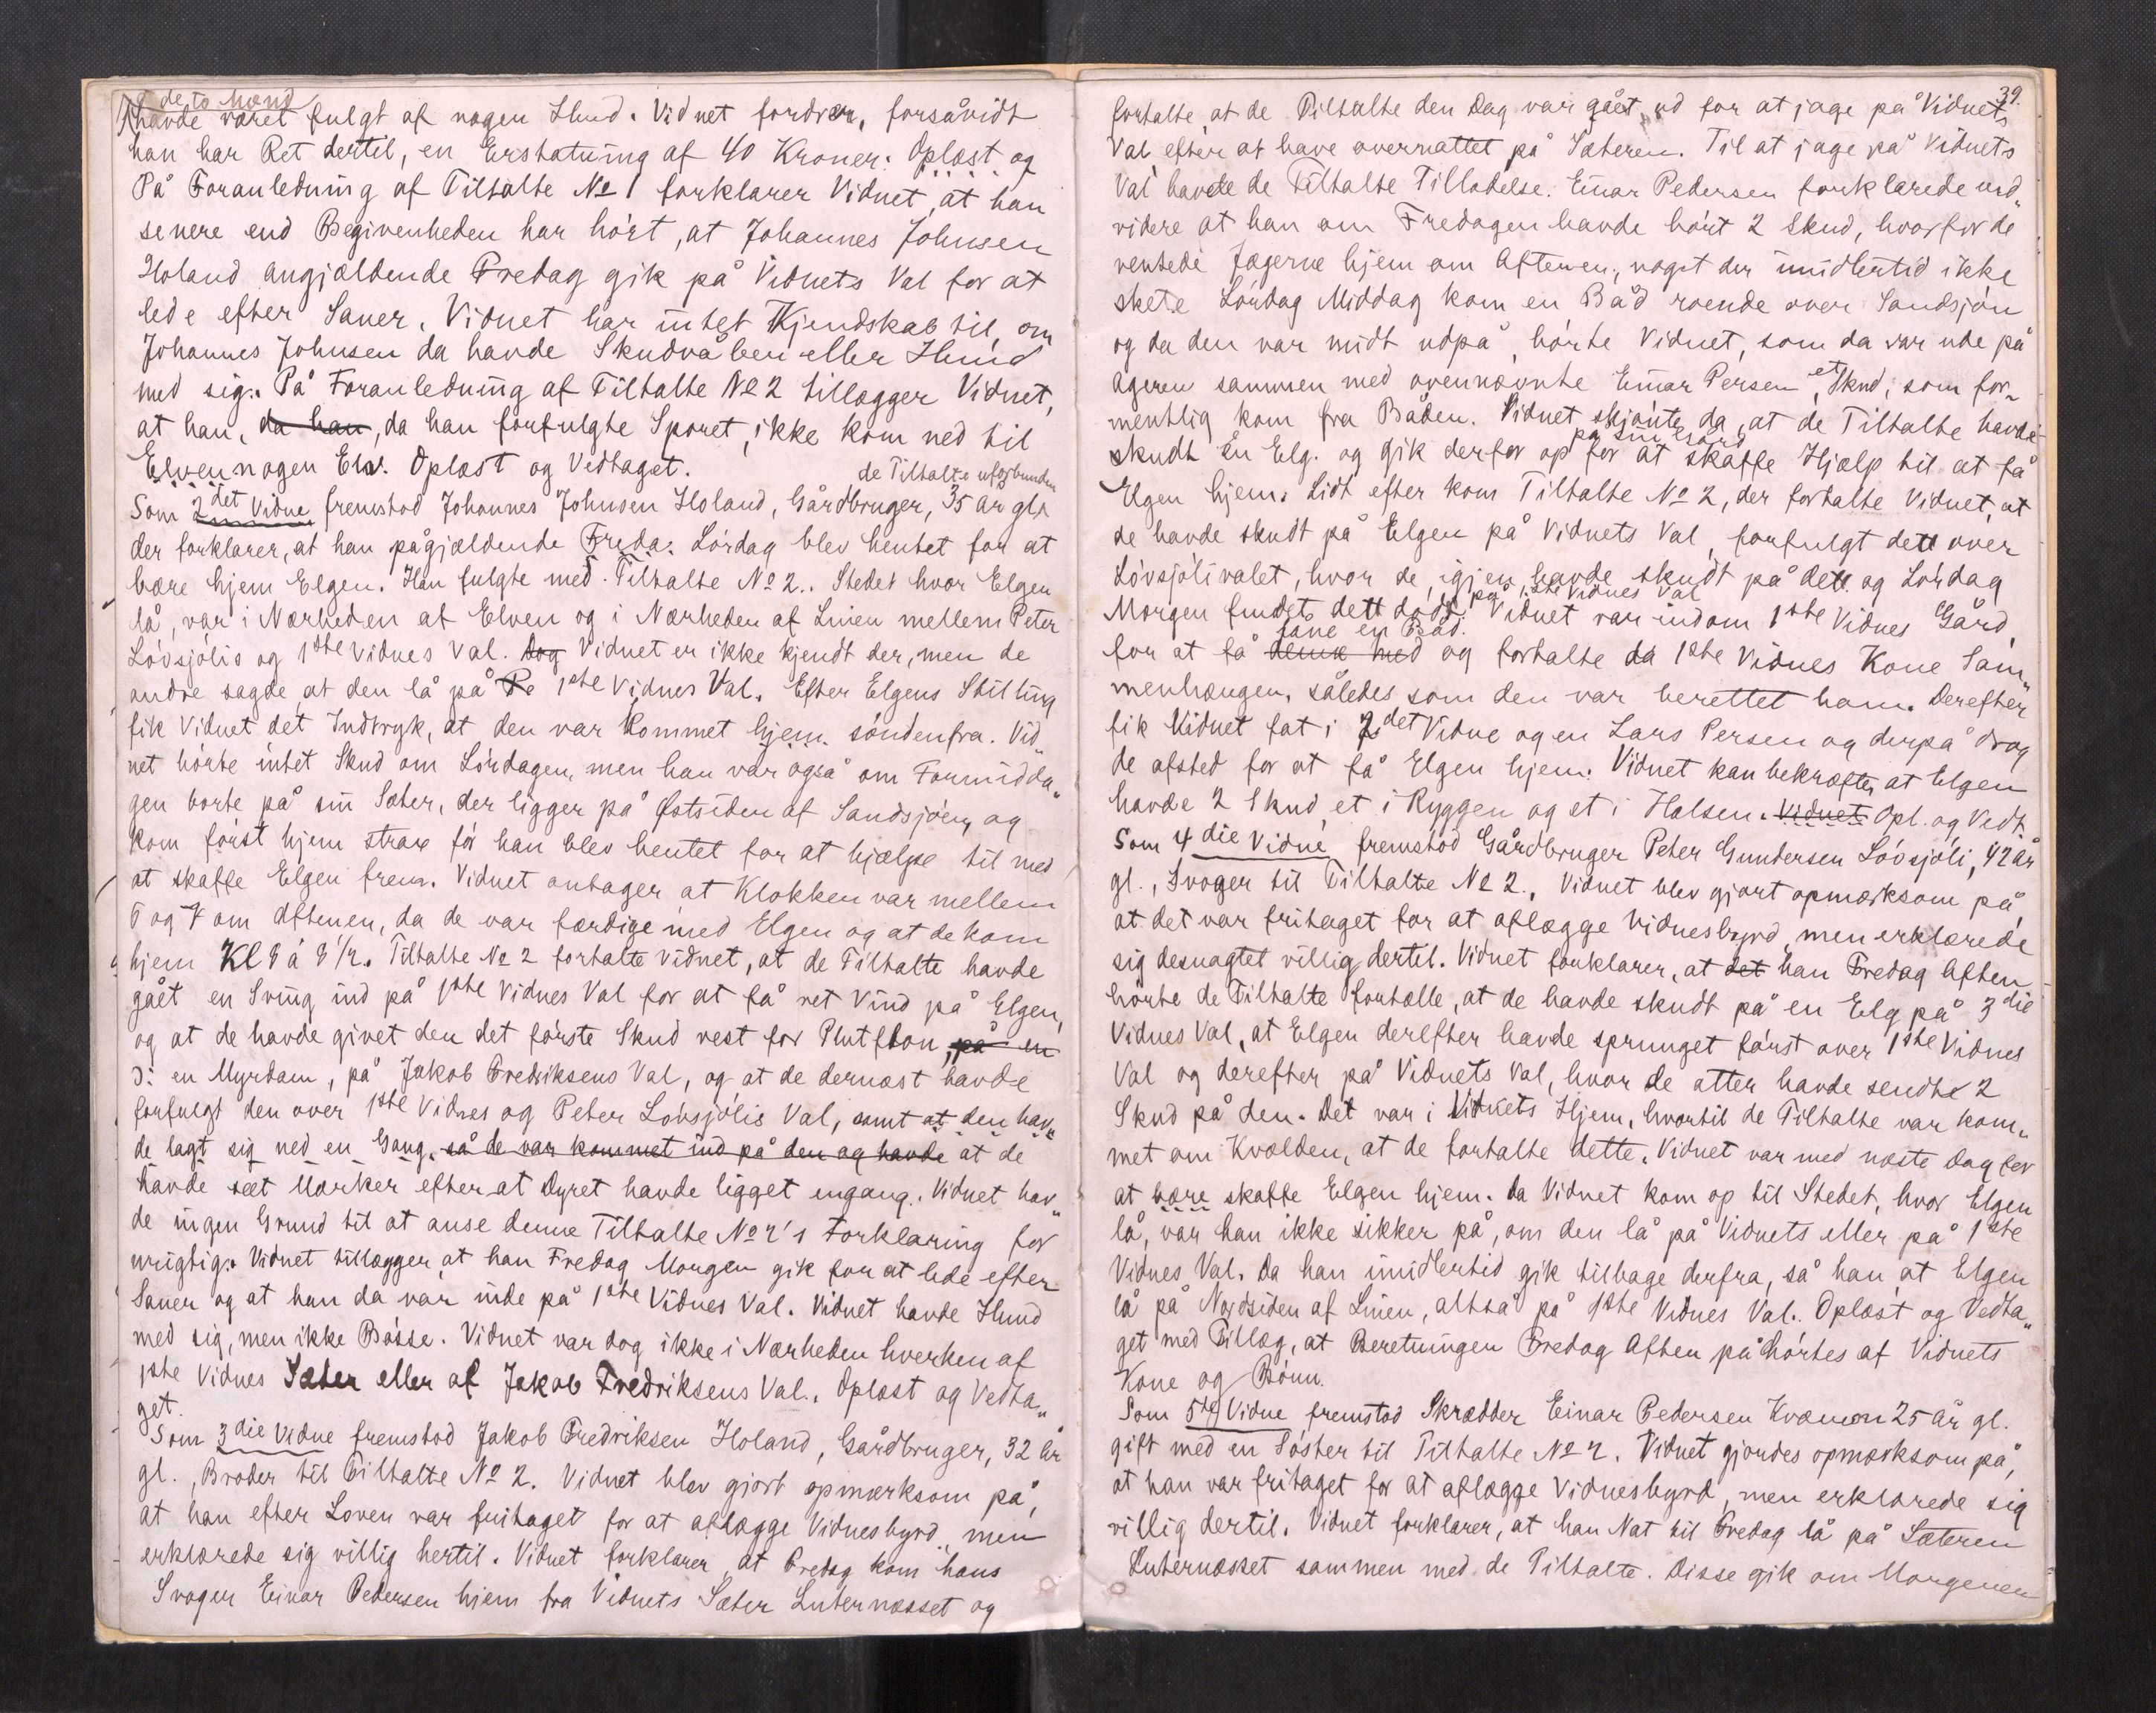 de to Mænd
havde været fulgt af nogen Hund. Vidnet fordrer, forsåvidt
han har Ret dertil, en Erstatning af 40 Kroner. Oplæst og
På Foranledning af Tiltalte No 1 forklarer Vidnet, at han
senere end Begivenheden har hört, at Johannes Johnsen
Holand angjældende Fredag gik på Vidnets Val for at
lede efter Sauer. Vidnet har intet Kjendskab til, om
Johannes Johnsen da havde Skudvåben eller Hund
med sig. På Foranledning af Tiltalte No 2 tillægger Vidnet,
at han, da han, da han forfulgte Sporet, ikke kom ned til
Elven nogen Elv. Oplæst og Vedtaget.
de Tiltalte uforbunden
Som 2det Vidne fremstod Johannes Johnsen Holand, Gårdbruger, 35 år gl.
der forklarer, at han pågjældende Freda. Lördag blev hentet for at
bære hjem Elgen. Han fulgte med Tiltalte No 2. Stedet hvor Elgen
lå, var i Nærheden af Elven og i Nærheden af Linien mellem Peter
Lövsjölis og 1ste Vidnes Val. Dog Vidnet er ikke kjendt der, men de
andre sagde, at den lå på Pe 1ste Vidnes Val. Efter Elgens Stilling
fik Vidnet det Indtryk, at den var kommet hjem söndenfra. Vid„
net hörte intet Skud om Lördagen, men han var også om Formidda„
gen borte på sin Sæter, der ligger på Østsiden af Sandsjöen, og
kom först hjem strax för han blev hentet for at hjælpe til med
at skaffe Elgen frem. Vidnet antager at Klokken var mellem
6 og 7 om Aftenen, da de var færdige med Elgen og at de kom
hjem Kl 8 à 8 1/2. Tiltalte No 2 fortalte Vidnet, at de Tiltalte havde
gået en Sving ind på 1ste Vidnes Val for at få ret Vind på Elgen,
og at de havde givet den det förste Skud vest for Plutflon, på en
ɔ: en Myrdam, på Jakob Fredriksens Val, og at de dernæst havde
forfulgt den over 1ste Vidnes og Peter Lövsjölis Val, samt at den hav„
de lagt sig ned en Gang, så de var kommet ind på den og havde at de
havde sæt Mærker efter at Dyret havde ligget engang. Vidnet hav„
de ingen Grund til at anse denne Tiltalte No 2's Forklaring for
urigtig. Vidnet tillægger, at han Fredag Morgen gik for at lede efter
Sauer og at han da var inde på 1ste Vidnes Val. Vidnet havde Hund
med sig, men ikke Bösse. Vidnet var dog ikke i Nærheden hverken af
1ste Vidnes Sæter eller af Jakob Fredriksens Val. Oplæst og Vedta„
get.
Som 3die Vidne fremstod Jakob Fredriksen Holand, Gårdbruger, 32 år
gl., Broder til Tiltalte No 2. Vidnet blev gjort opmærksom på,
at han efter Loven var fritaget for at aflægge Vidnesbyrd, men
erklærede sig villig hertil. Vidnet forklarer, at Fredag kom hans
Svoger Einar Pedersen hjem fra Vidnets Sæter Luternæsset og
39.
fortalte, at de Tiltalte den Dag var gået ud for at jage på Vidnets
Val efter at have overnattet på Sæteren. Til at jage på Vidnets
Val havde de Tiltalte Tilladelse. Einar Pedersen forklarede end„
videre at han om Fredagen havde hört 2 Skud, hvorfor de
ventede Jægerne hjem om Aftenen, noget der imidlertid ikke
skete. Lördag Middag kom en Båd roende over Sandsjön
og da den var midt udpå, hörte Vidnet, som da var ude på
ageren sammen med ovennævnte Einar Persen et Skud, som for„
mentlig kom fra Båden. Vidnet skjönte da, at de Tiltalte havde
på sin Gård
skudt en Elg. og gik derfor op for at skaffe Hjælp til at få
Elgen hjem. Lidt efter kom Tiltalte No 2, der fortalte Vidnet, at
de havde skudt på Elgen på Vidnets Val, forfulgt dett over
Lövsjölivalet, hvor de igjen havde skudt på dett og Lördag
på 1ste Vidnes Val
Morgen fundet dett dödt. Vidnet var indom 1ste Vidnes Gård,
låne en Båd.
for at få denne med og fortalte da 1ste Vidnes Kone Sam„
menhængen, således som den var berettet ham. Derefter
fik Vidnet fat i 2det Vidne og en Lars Persen og derpå drog
de afsted for at få Elgen hjem. Vidnet kan bekræfte, at Elgen
havde 2 Skud, et i Ryggen og et i Halsen. Vidnet Opl. og Vedt.
Som 4die Vidne fremstod Gårdbruger Peter Gundersen Lövsjöli, 42 år
gl., Svoger til Tiltalte No 2. Vidnet blev gjort opmærksom på,
at det var fritaget for at aflægge Vidnesbyrd, men erklærede
sig desuagtet villig dertil. Vidnet forklarer, at det han Fredag Aften
hörte de Tiltalte fortælle, at de havde skudt på en Elg på 3die
Vidnes Val, at Elgen derefter havde sprunget först over 1ste Vidnes
Val og derefter på Vidnets Val, hvor de atter havde sendte 2
Skud på den. Det var i Vidnets Hjem, hvortil de Tiltalte var kom„
met om Kvælden, at de fortalte dette. Vidnet var med næste Dag for
at bære skaffe Elgen hjem. Da Vidnet kom op til Stedet, hvor Elgen
lå, var han ikke sikker på, om den lå på Vidnets eller på 1ste
Vidnes Val. Da han imidlertid gik tilbage derfra, så han, at Elgen
lå på Nordsiden af Linien, altså på 1ste Vidnes Val. Oplæst og Vedta„
get med Tillæg, at Beretningen Fredag Aften påhörtes af Vidnets
Kone og Börn.
Som 5te Vidne fremstod Skrædder Einar Pedersen Kvæmon 25 år gl.
gift med en Söster til Tiltalte No 2. Vidnet gjordes opmærksom på,
at han var fritaget for at aflægge Vidnesbyrd, men erklærede sig
villig dertil. Vidnet forklarer, at han Nat til Fredag lå på Sæteren
Luternæsset sammen med de Tiltalte. Disse gik om Morgenen